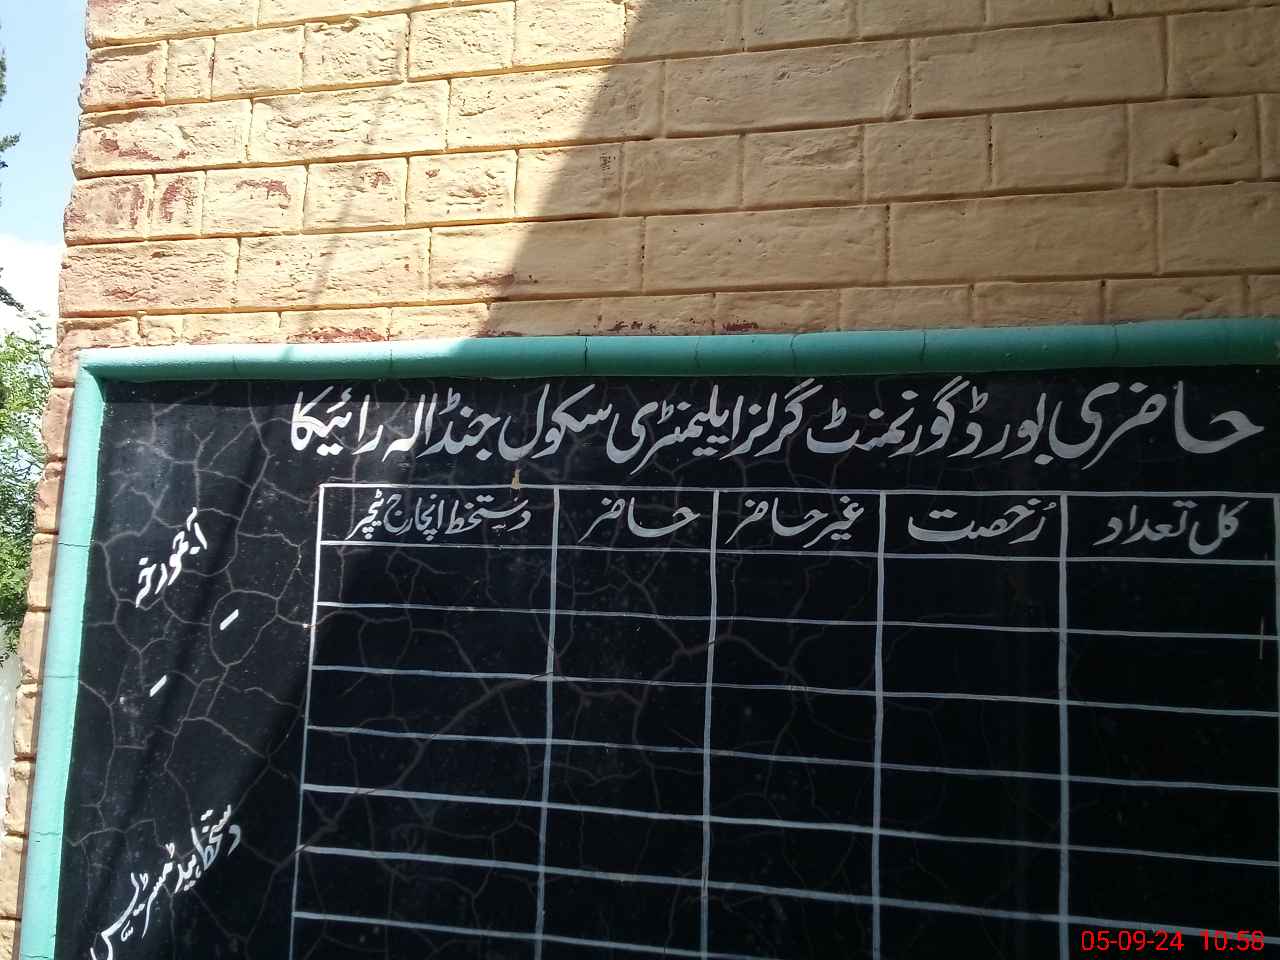 حاضری بورڈ گورنمنٹ گرلز ایلیمنٹری سکول جنڈالہ رائیکا
کل تعداد رُخصت غیر حاضر حاضر دستخط انچارج ٹیچر
آج مورخہ
دستخط ہیڈ مسٹریس
05-09-24 10.58